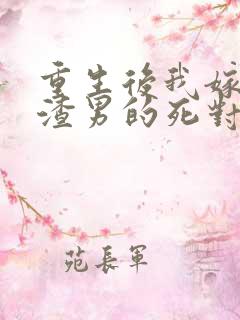 重生後我嫁
渣男的死對
苑長軍